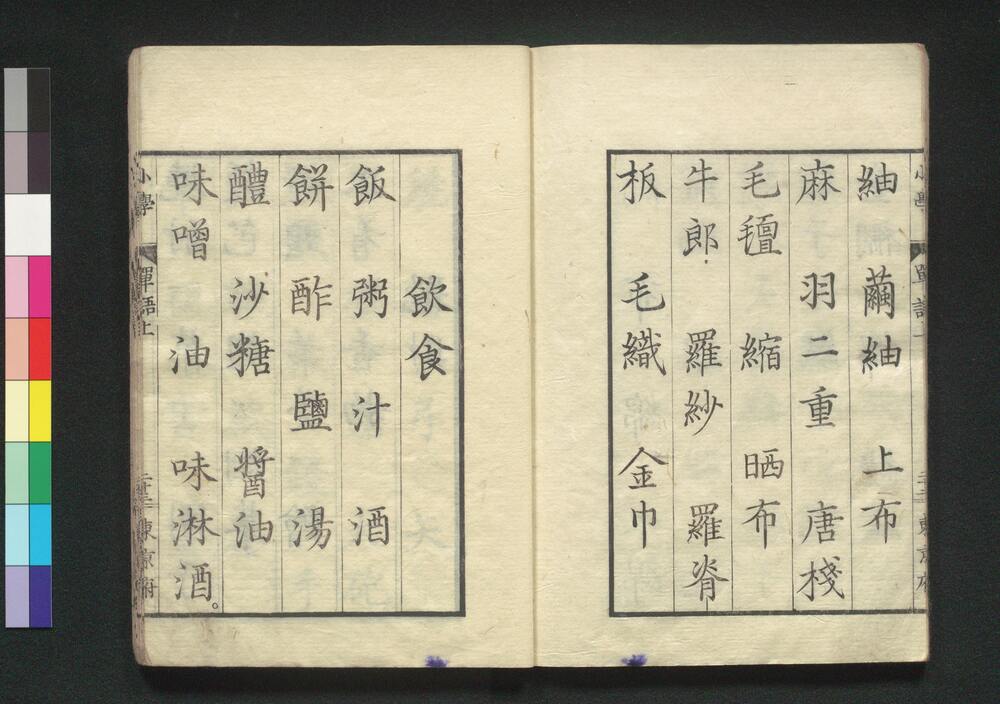 紬　繭紬　上布
麻　羽二重　唐棧
毛氊　縮　晒布
牛郎　羅紗　羅脊
板　毛織　金巾
飲食
飯　粥　汁　酒
餅　酢　鹽　湯
醴　沙糖　醤油
味噌　油　味淋酒。
小學　單語上　東京府